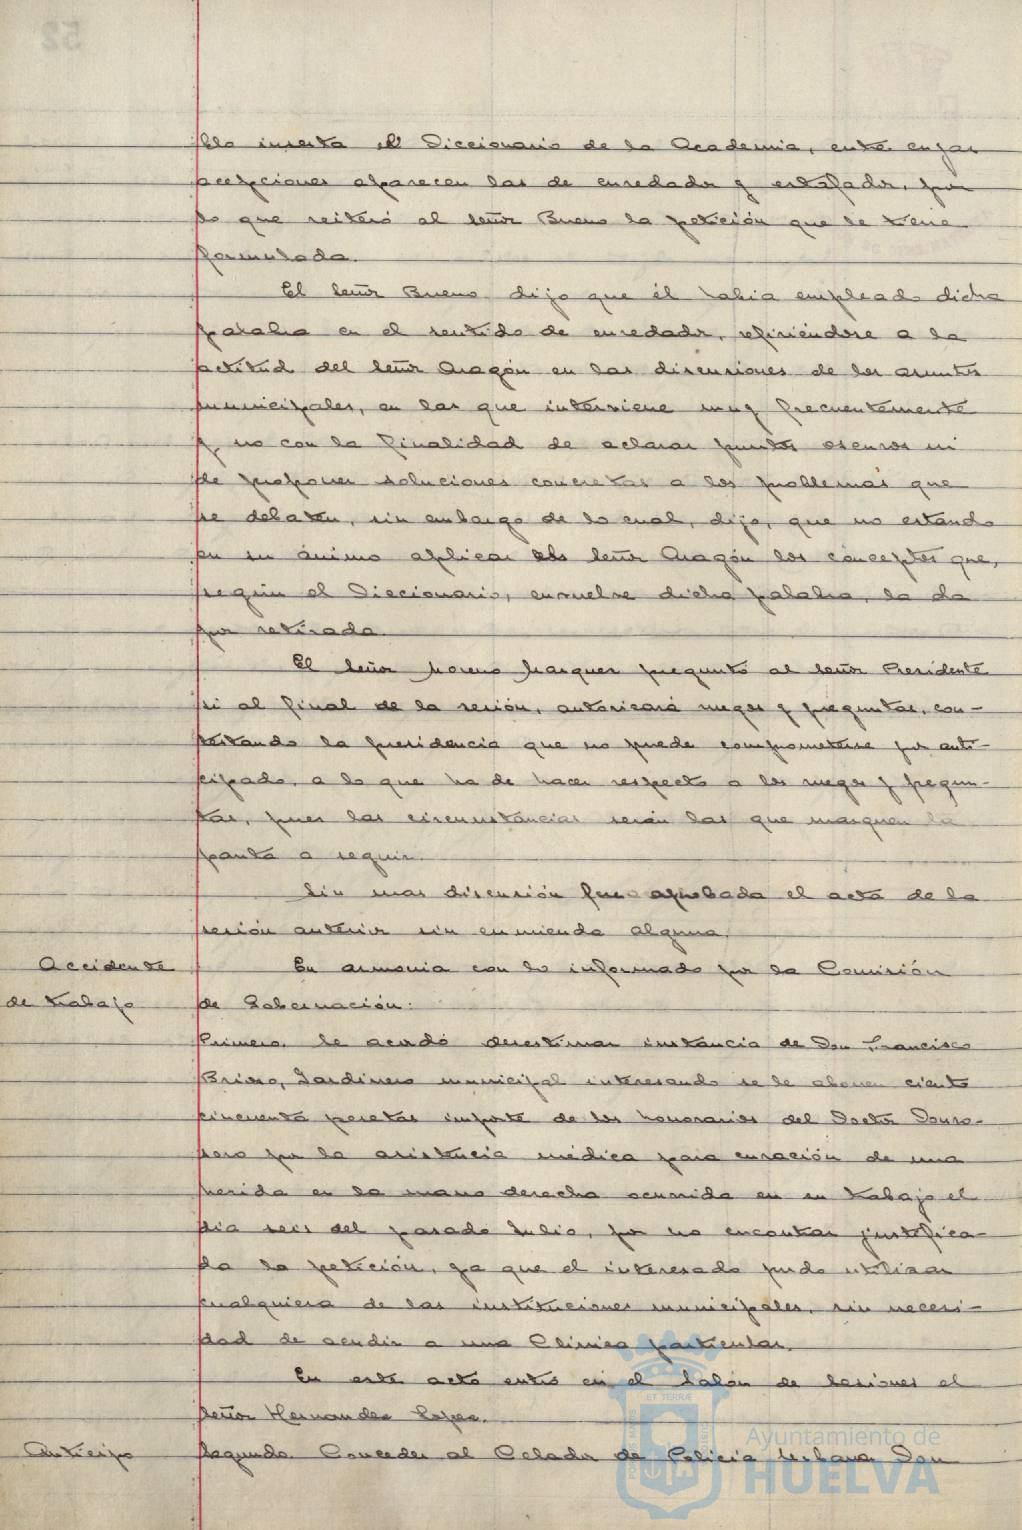 la inserta el Diccionario de la Academia, entre cuyas
acepciones aparecen las de enredador y estafador, por
lo que reiteró al señor Bueno la petición que le tiene
formulada.
El señor Bueno dijo que él habia empleado dicha
palabra en el sentido de enredador, refiriéndose a la
actitud del señor Aragón en las discusiones de los asuntos
municipales, en las que interviene muy frecuentemente
y no con la finalidad de aclarar puntos oscuros ni
de proponer soluciones concretas a los problemas que
se debaten, sin embargo de lo cual, dijo, que no estando
en su ánimo aplicar al señor Aragón los conceptos que,
según el Diccionario, envuelve dicha palabra, la da
por retirada.
El señor Moreno Marquez preguntó al señor Presidente
si al final de la sesión, autorizará ruegos y preguntas, con-
testando la presidencia que no puede comprometerse por anti-
cipado, a lo que ha de hacer respecto a los ruegos y pregun-
tas, pues las circunstancias serán las que marquen la
pauta a seguir.
Sin mas discusión fue aprobada el acta de la
sesión anterior sin enmienda alguna.
Accidente
de trabajo
En armonia con lo informado por la Comisión
de Gobernación:
Primero. Se acordó desestimar instancia de Don Francisco
Jardinero municipal interesando se le abonen ciento
cincuenta pesetas importe de los honorarios del Doctor
por la asistencia médica para curación de una
herida en la mano derecha ocurrida en su trabajo el
dia seis del pasado Julio, por no encontrar justifica-
da la petición, ya que el interesado pudo utilizar
cualquiera de las instituciones municipales, sin necesi-
dad de acudir a una Clinica particular.
En este acto entró en el Salón de Sesiones el
señor Hernandez Lopez.
Anticipo
Segundo. Conceder al Celador de Policia Urbana Don
Ayuntamiento de
HUELVA
52